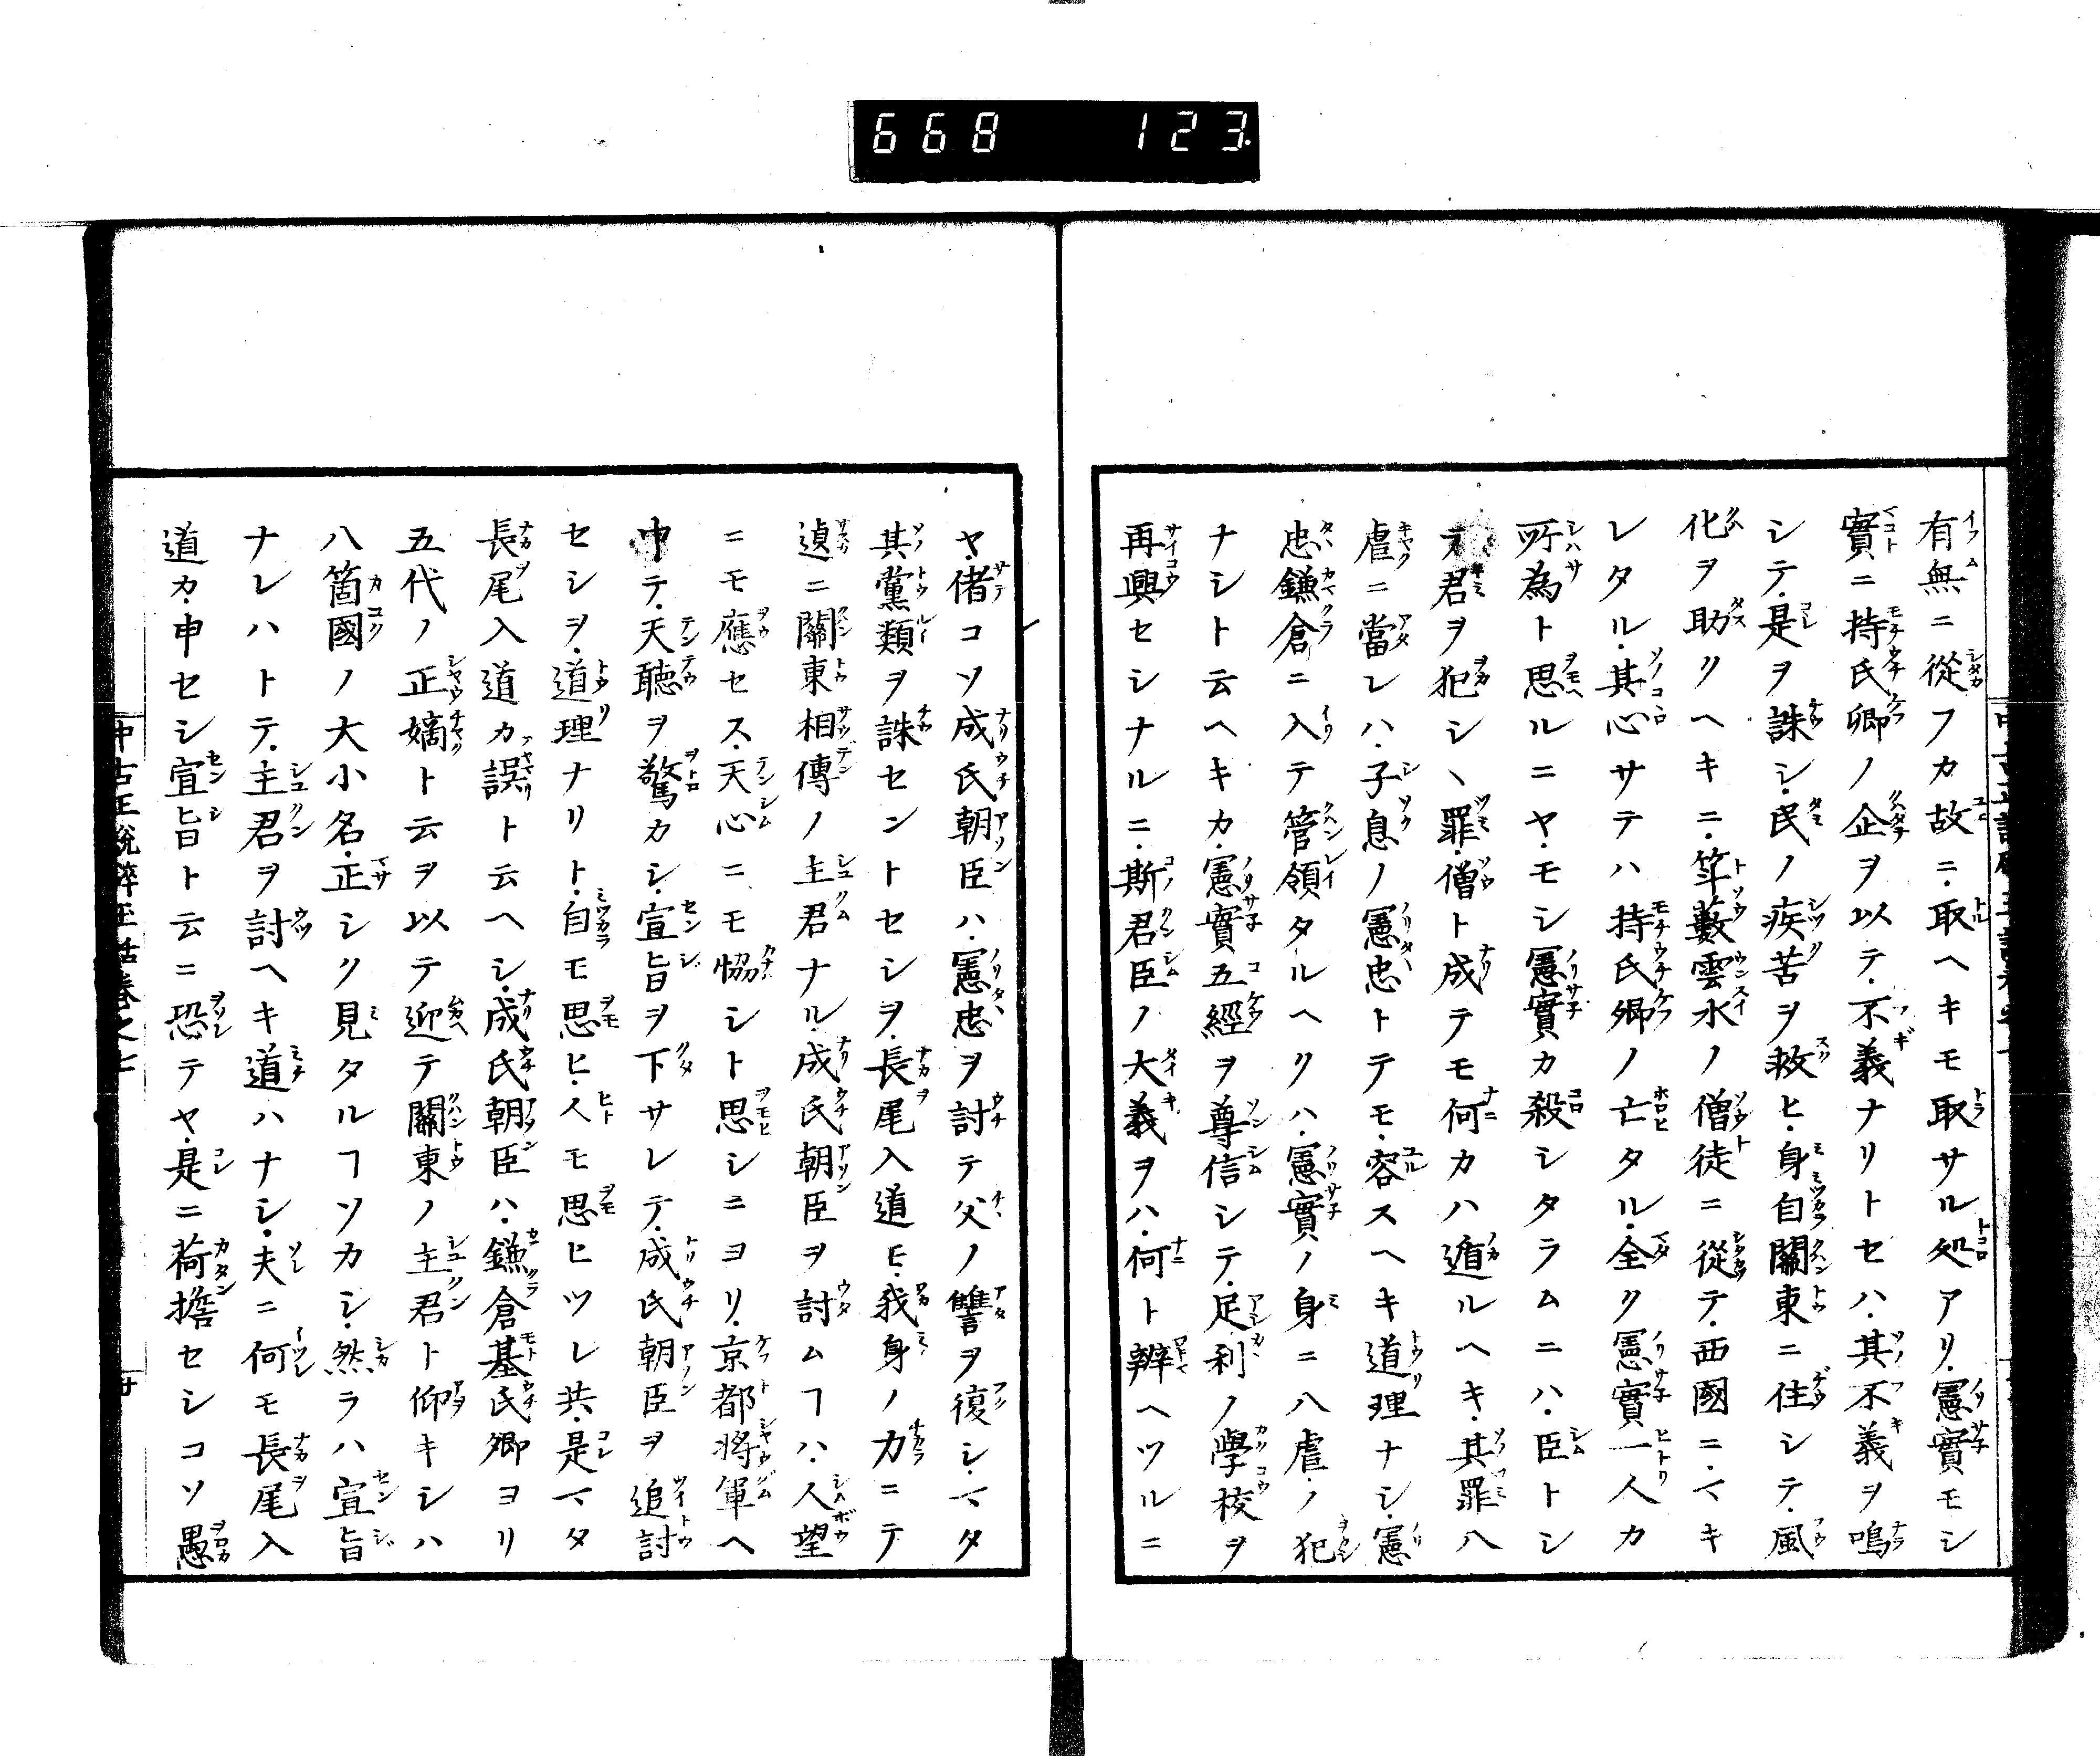 668 123
有無ニ從フカ故ニ取ヘキモ取サル処アリ憲實モシ
實ニ持氏卿ノ企ヲ以テ不義ナリトセハ其不義ヲ鳴
シテ是ヲ誅シ民ノ疾苦ヲ救ヒ身自關東ニ住シテ風
化ヲ助クヘキニ筭藪雲水ノ僧徒ニ從テ西國ニマキ
レタル其心サテハ持氏卿ノ亡タル全ク憲實一人カ
所為ト思ルニヤモシ憲實カ殺シタラムニハ臣トシ
テ君ヲ犯シヽ罪僧ト成テモ何カハ遁ルヘキ其罪八
虐ニ當レハ子息ノ憲忠トテモ容スヘキ道理ナシ憲
忠鎌倉ニ入テ管領タルヘクハ憲實ノ身ニ八虐ノ犯
ナシト云ヘキカ憲實五經ヲ尊信シテ足利ノ學校ヲ
再興セシナルニ斯君臣ノ大義ヲハ何ト辨ヘツルニ
ヤ偖コソ成氏朝臣ハ憲忠ヲ討テ父ノ讐ヲ復シマタ
其黨類ヲ誅セントセシヲ長尾入道モ我身ノ力ニテ
遉ニ關東相傳ノ主君ナル成氏朝臣ヲ討ムヿハ人望
ニモ應セス天心ニモ恊シト思シニヨリ京都將軍ヘ
申テ天聽ヲ驚カシ宣旨ヲ下サレテ成氏朝臣ヲ追討
セシヲ道理ナリト自モ思ヒ人モ思ヒツレ共是マタ
長尾入道カ誤ト云ヘシ成氏朝臣ハ鎌倉基氏卿ヨリ
五代ノ正嫡ト云ヲ以テ迎テ關東ノ主君ト仰キシハ
八箇國ノ大小名正シク見タルヿソカシ然ラハ宣旨
ナレハトテ主君ヲ討ヘキ道ハナシ夫ニ何モ長尾入
道カ申セシ宣旨ト云ニ恐テヤ是ニ荷擔セシコソ愚
中古正統辟王話卷之七
廿